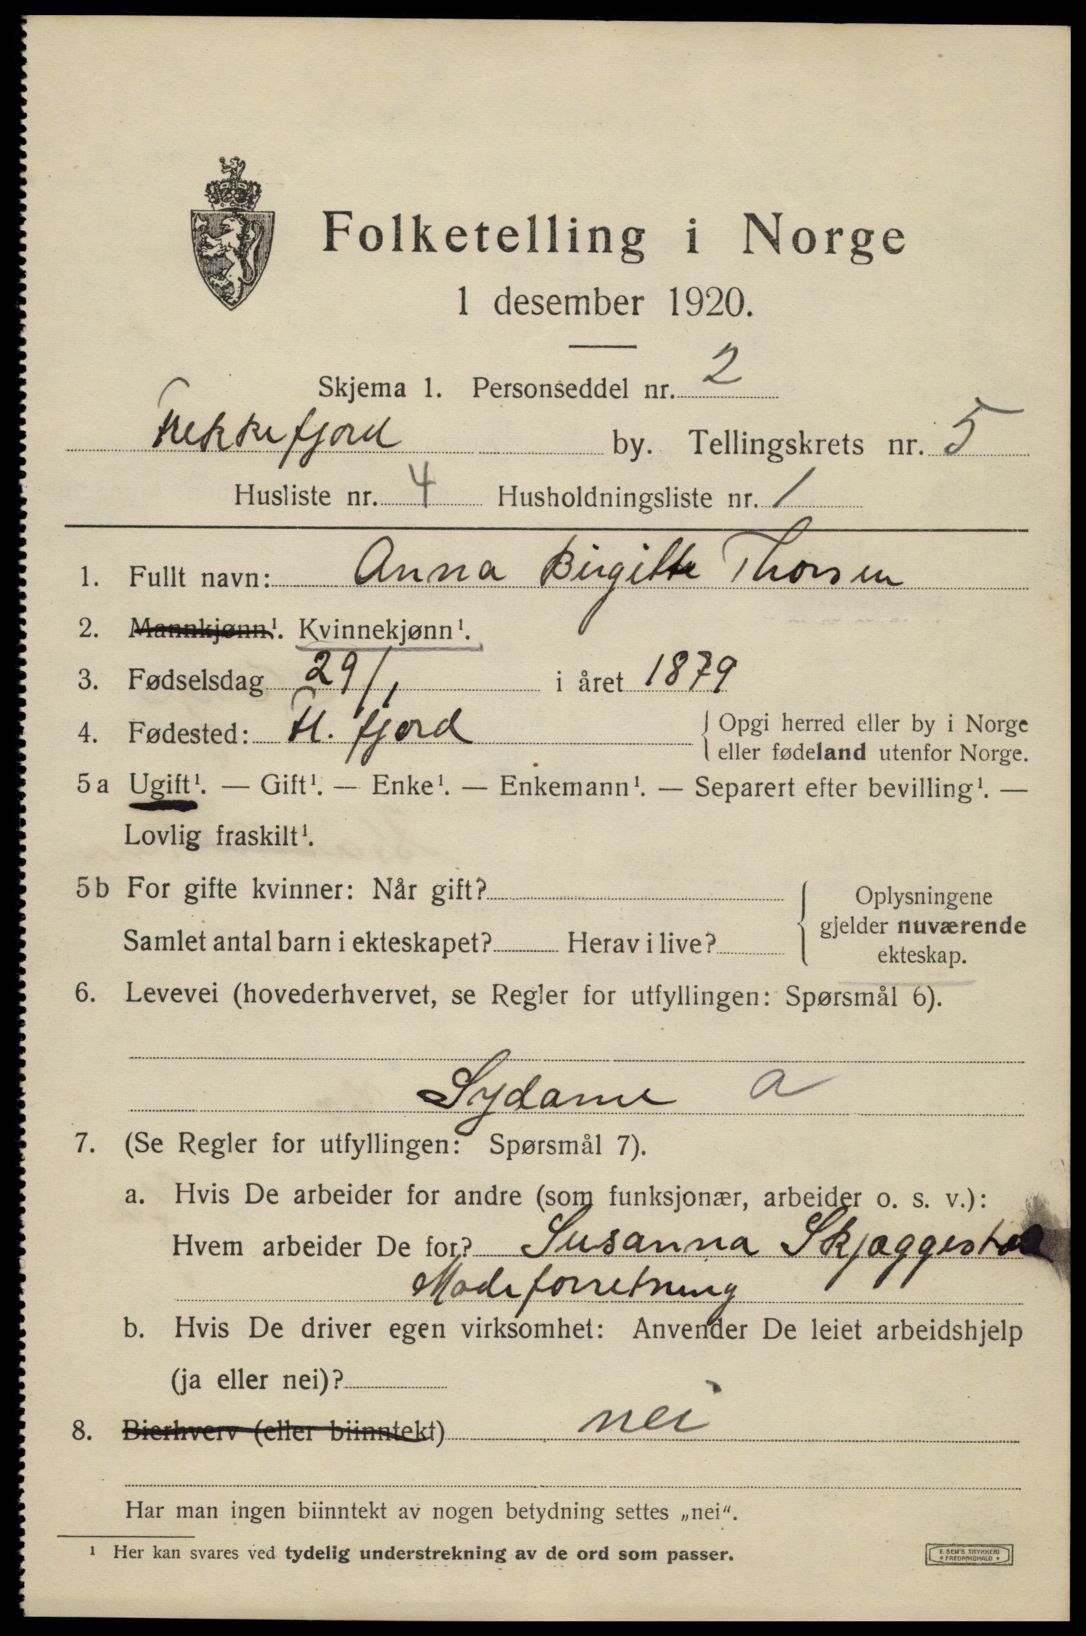 Folketelling i Norge
1 desember 1920.
Skjema 1. Personseddel nr. 2
Flekkefjord by. Tellingskrets nr. 5
Husliste nr. 4 Husholdningsliste nr. 1
1. Fullt navn: Anna Birgitte Thorsen
2. Mannkjønn¹. Kvinnekjønn¹.
3. Fødselsdag 29/1 i året 1879
4. Fødested: Fl. fjord { Opgi herred eller by i Norge
eller fødeland utenfor Norge.
5 a Ugift¹. — Gift¹. — Enke¹. — Enkemann¹. — Separert efter bevilling¹. —
Lovlig fraskilt¹.
5 b For gifte kvinner: Når gift? { Oplysningene
gjelder nuværende
Samlet antal barn i ekteskapet? Herav i live?
ekteskap.
6. Levevei (hovederhvervet, se Regler for utfyllingen: Spørsmål 6).
Sydame a
7. (Se Regler for utfyllingen: Spørsmål 7).
a. Hvis De arbeider for andre (som funksjonær, arbeider o. s. v.):
Hvem arbeider De for? Susanna Skjæggestad
Modeforretning
b. Hvis De driver egen virksomhet: Anvender De leiet arbeidshjelp
(ja eller nei)?
8. Bierhverv (eller biinntekt) nei
Har man ingen biinntekt av nogen betydning settes „nei“.
¹ Her kan svares ved tydelig understrekning av de ord som passer.
E. SEM'S TRYKKERI
• FREDRIKSHALD •